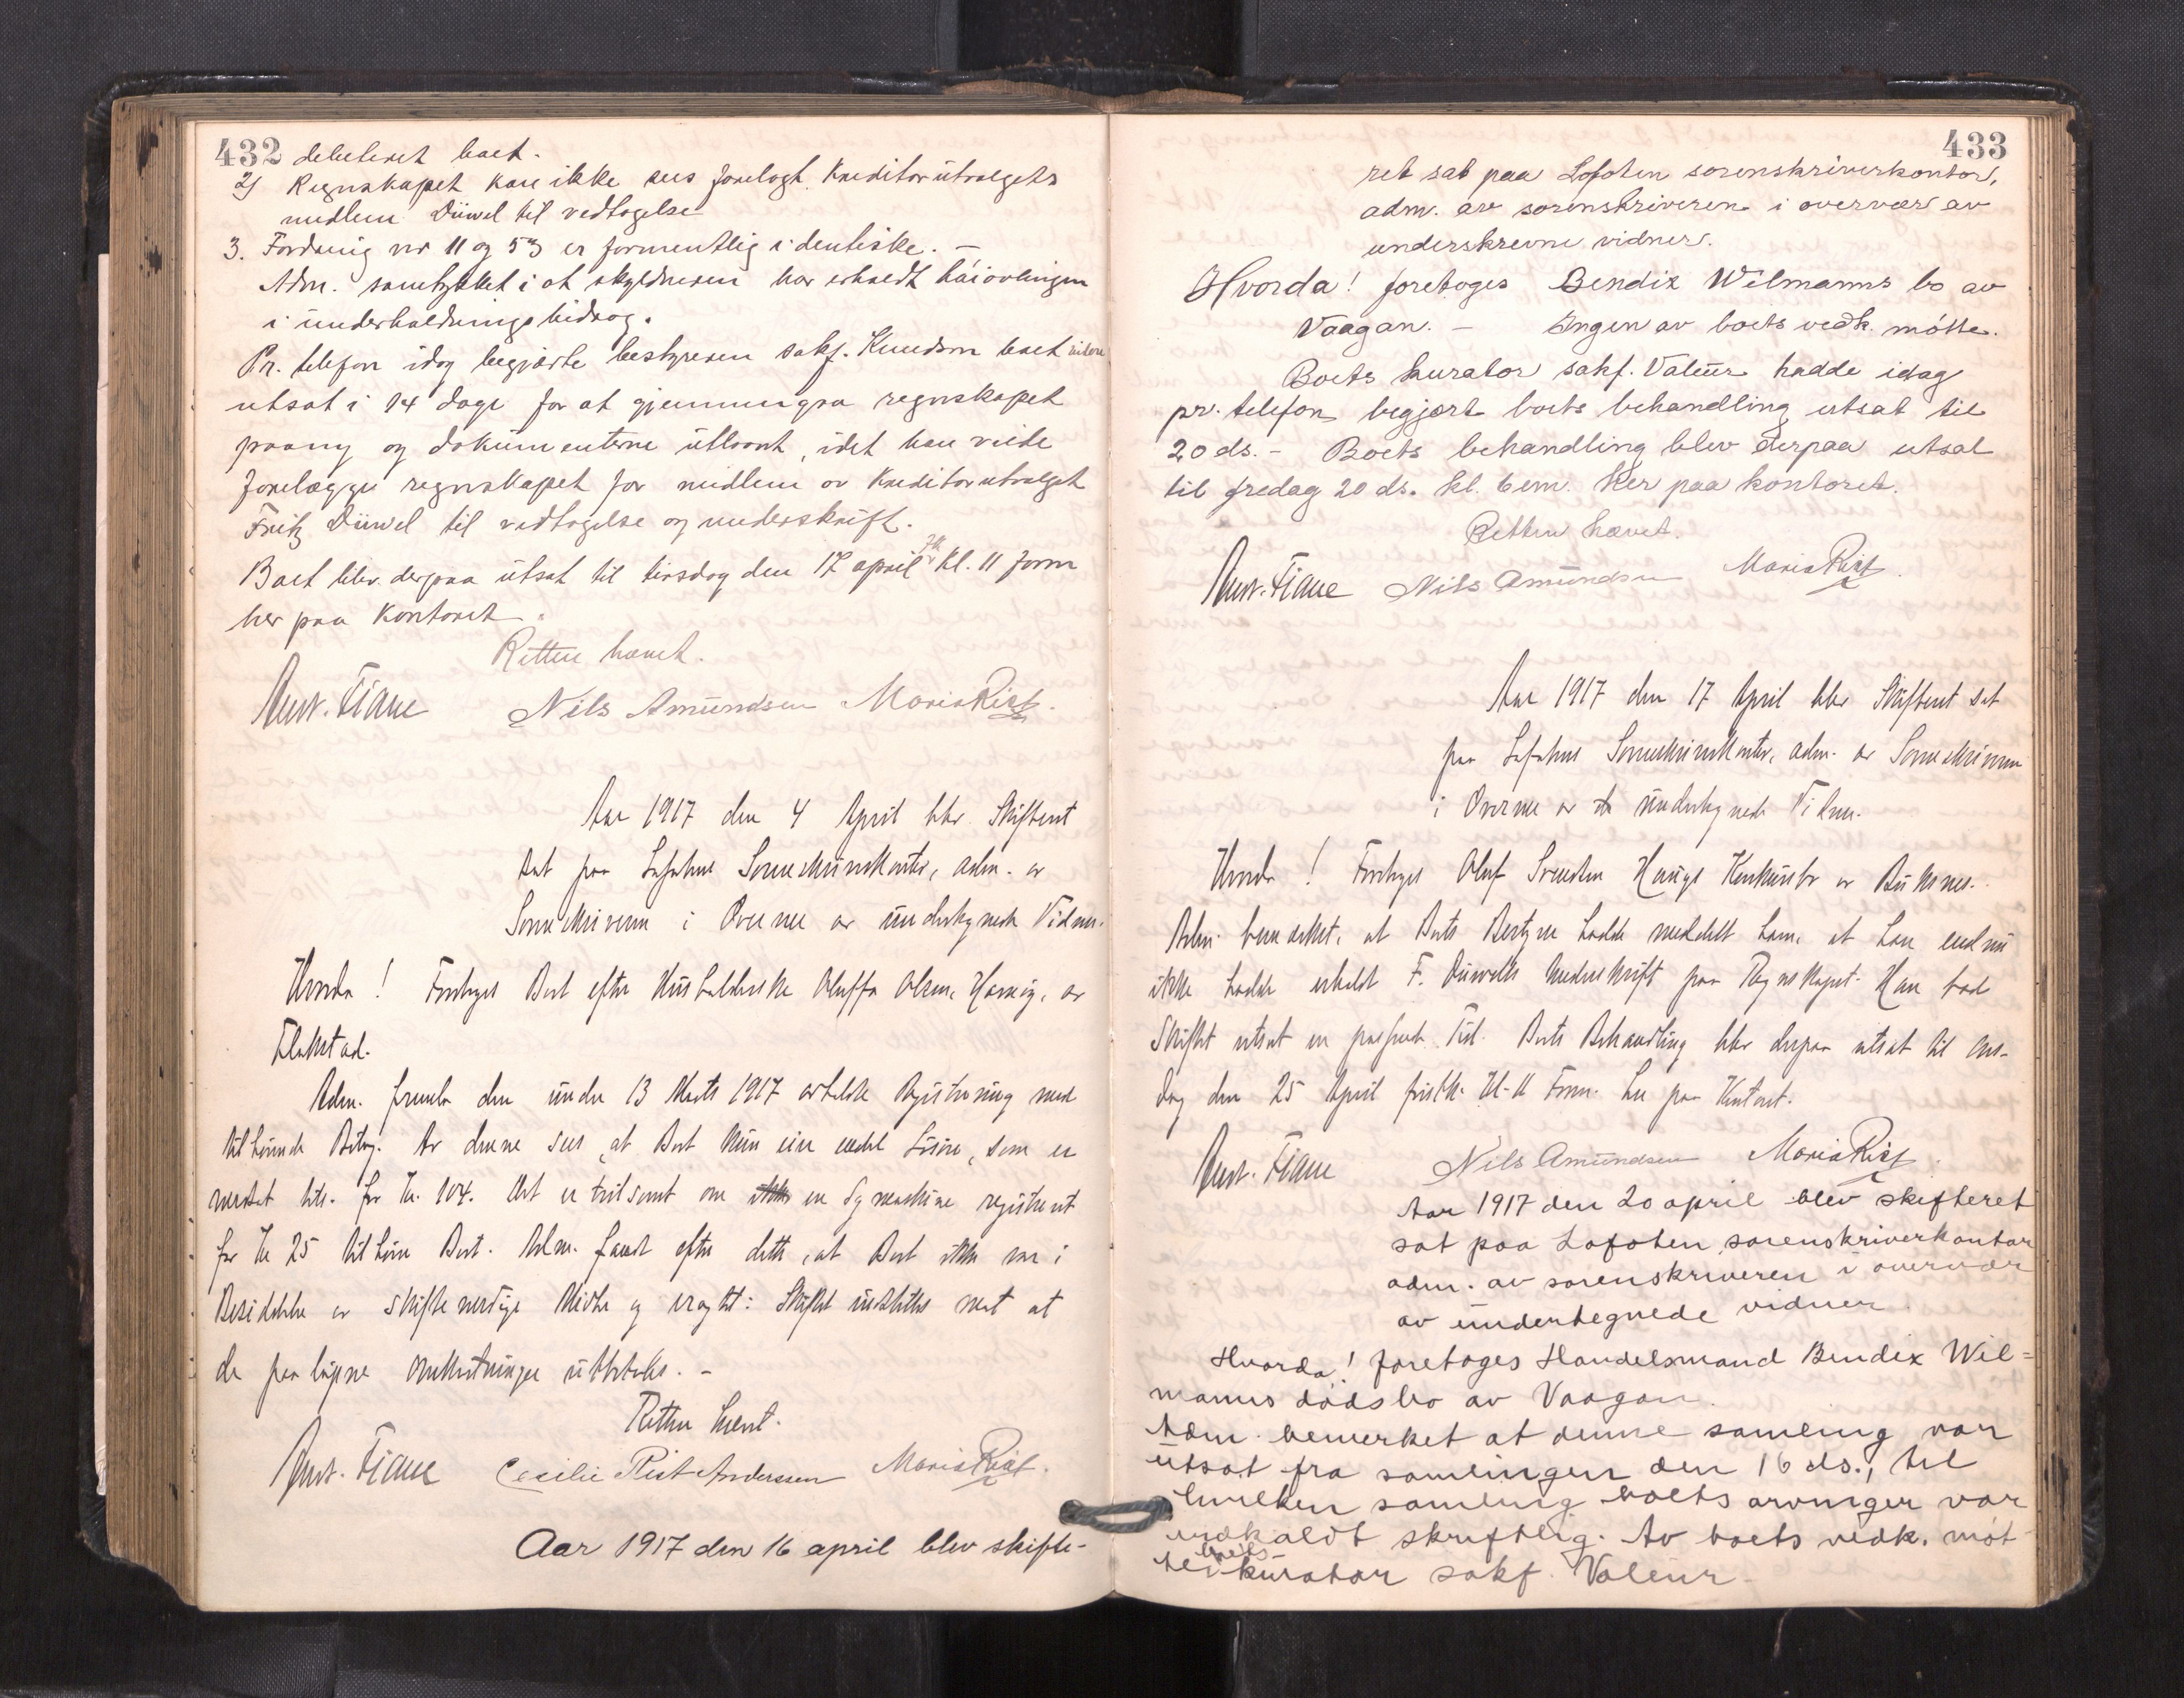 432 debiteret boet.
2) Regnskapet kan ikke sees forelagt Kreditorutvalgets
medlem Düwel til vedtagelse
3. Fordring nr 11 og 53 er formentlig identiske. –
Adm. samtykket i at skyldneren har erholdt
i underholdningsbidrag.
Pr. telefon idag begjærte bestyreren sakf. Knudson boet videre
utsat i 14 dage for at gjennemgaa regnskapet
paany og dokumenterne utlaant, idet han vilde
forelægge regnskapet for medlem av Kreditorutvalget
Fritz Düwel til vedtagelse og underskrift.
Boet blev derpaa utsat til tirsdag den 17 april Kl. 11 form
her paa Kontoret.
Retten hævet.
Anst. Fiane Nils Amundsen Maria Rist.
Aar 1917 den 4 April blev Skifteret
sat paa Lofotens Sorenskriverkontor, adm. av
Sorenskriveren i Overvær av undertegnede Vidner.
Hvorda! Foretoges Boet efter Husholderske Oluffa Olsen, Hamøy, av
Flakstad.
Adm. fremla den under 13 Marts 1917 avholdte Registrering med
tilhørende Bilag. Av denne sees, at Boet kun eier endel Løsøre, som er
værdsat til. for Kr. 104. Det er tvilsomt om en Symaskine registreret
for Kr 25 tilhører Boet. Adm. fandt efter dette, at Boet ikke var i
Besiddelse av skifteværdige Midler og eragtet: Skiftet indstilles mot at
de paaløpne Omkostninger utbetales. –
Retten hævet.
Anst. Fiane Cecilie Rist Andersen Maria Rist.
Aar 1917 den 16 april blev skifte-
433
ret sat paa Lofoten sorenskriverkontor,
adm. av sorenskriveren i overvær av
underskrevne vidner.
Hvorda! foretoges Bendix Wilmanns bo av
Vaagan. – Ingen av boets vedk. møtte.
Boets kurator sakf. Valeur hadde idag
pr. telefon begjært boets behandling utsat til
20 ds. – Boets behandling blev derpaa utsat
til fredag 20 ds. kl. 6 em. her paa kontoret.
Retten hævet.
Anst. Fiane Nils Amundsen Maria Rist.
Aar 1917 den 17 April blev Skifteret sat
paa Lofotens Sorenskriverkontor, adm. av Sorenskriveren
i Overvær av undertegnede Vidner.
Hvorda! Foretoges Oluf Svendsen Hauges Konkursbo av Buksnes.
Adm. bemærket, at Boets Bestyrer hadde meddelt ham, at han endnu
ikke hadde erholdt F. Düwels Underskrift paa Regnskapet. Han bad
Skiftet utsat en passende Tid. Boets Behandling blev derpaa utsat til Ons-
dag den 25 April førstk. Kl. 11 Form. her paa Kontoret.
Anst. Fiane Nils Amundsen Maria Rist.
Aar 1917 den 20 april blev skifteret
sat paa Lofoten sorenskriverkontor
adm. av sorenskriveren i overvær
av undertegnede vidner.
Hvorda! foretoges Handelsmand Bendix Wil=
manns dødsbo av Vaagan.
Adm. bemerket at denne samling var
utsat fra samlingen den 16 ds., til
hvilken samling boets arvinger var
indkaldt skriftlig. Av boets vedk. møt
te boets kurator sakf. Valeur